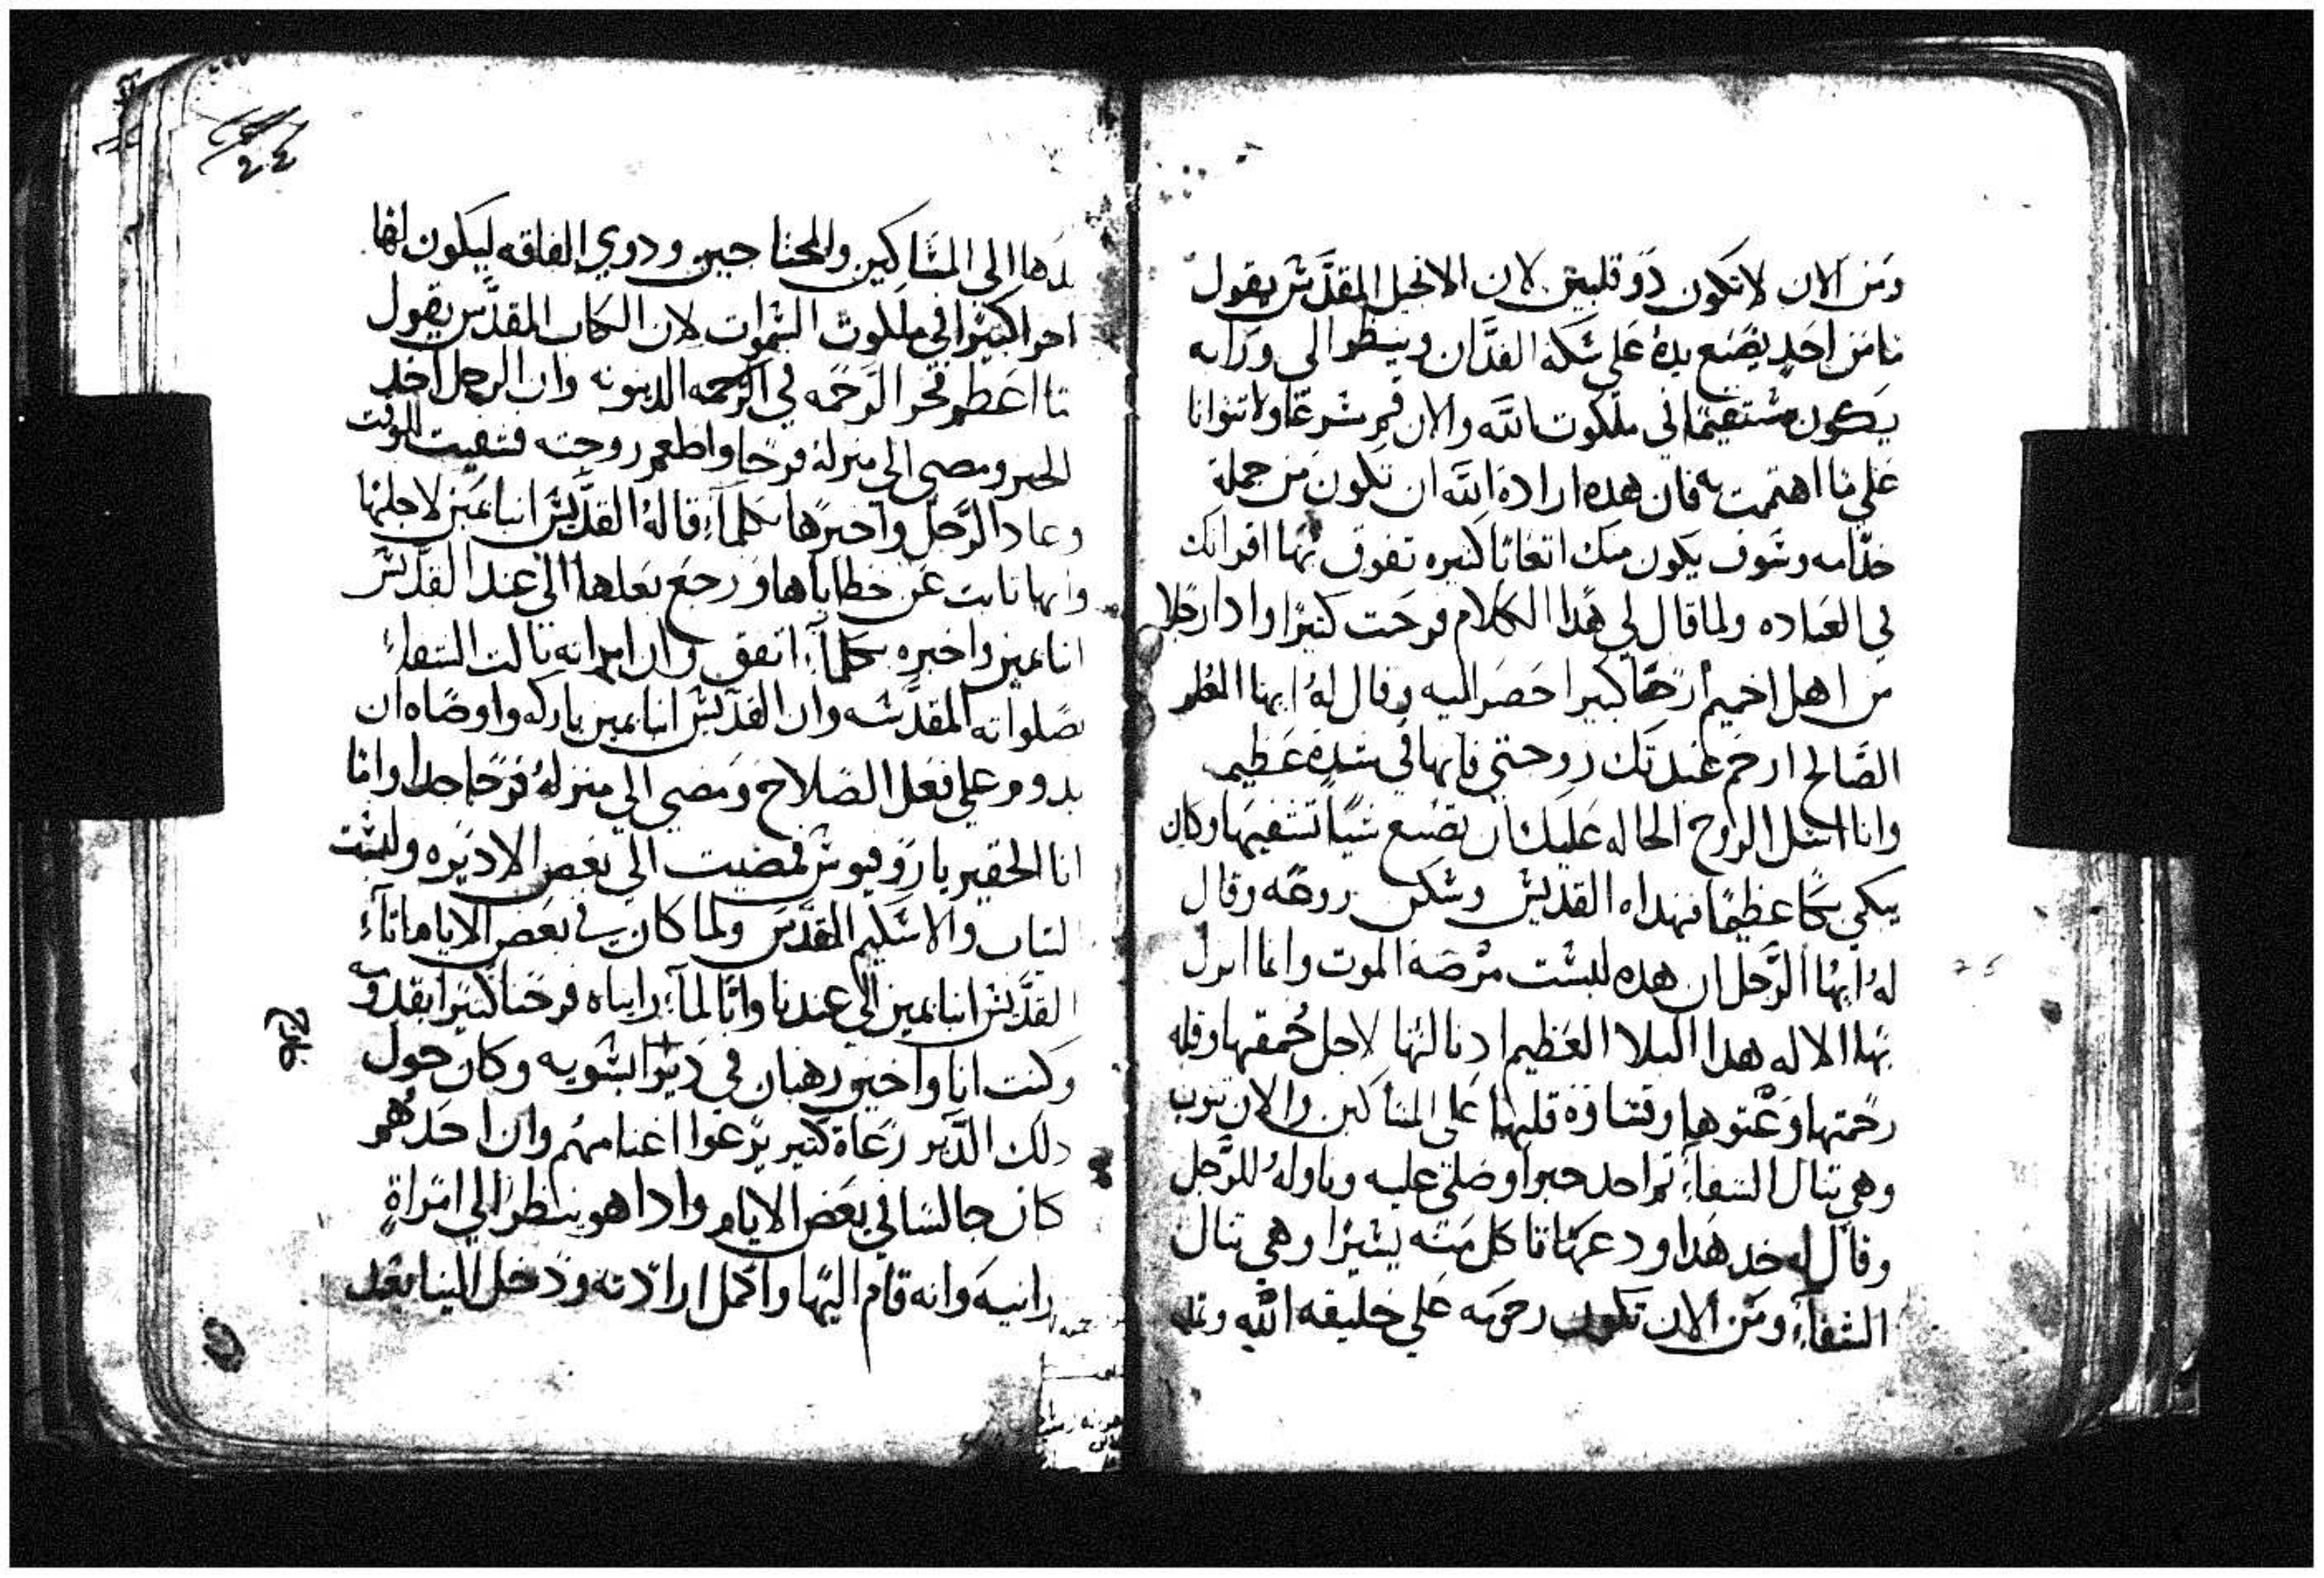 ومن الان لا تكون دو قلبين لان الانجيل المقدس يقول
ما من احد يضع يده على سكة الفدان وينظر الى ورايه
يكون مستقيمًا في ملكوت الله والان قم مسرعًا ولا تتوانا
على ما اهتميت به فان هده ارادة الله ان تكون من جملة
خدامه وسوف يكون منك اتعابًا كتيره تفوق بها اقرانك
في العباده ولما قال لي هدا الكلام فرحت كتيرًا وادا رجلا
من اهل اخميم ارخنًا كبيرا حضر اليه وقال له ايها
الصالح ارحم عبدتك زوجتي فانها في شدة عظيمه
وانا اسئل الروح الحاله عليك ان تصنع شيًا تشفيها وكان
يبكي بكًا عظيمًا فهداه القديس وسكن روعه وقال
له ايها الرجل ان هده ليست مرضة الموت وانما انزل
بها الاله هدا البلا العظيم لاجل حمقها وقلة
رحمتها وعتوها وقساوة قلبها على المساكين والان تتوب
وهي تنال الشفاء تم اخد خبزا وصلى عليه وناوله للرجل
وقال له خد هدا ودعها تاكل منه يسيرًا وهي تنال
الشفاء ومن الان تكون رحومه على خليقه الله
٢٠٤
الى المساكين والمحتاجين ودوي الفاقه ليكون لها
اجرا كبيرًا في ملكوت السموات لان الكتاب المقدس يقول
ما اعظم فخر الرحمه في الدينونه وان الرجل اخد
الخبز ومضى الى منزله فرحًا واطعم زوجته فشفيت للوقت
وعاد الرجل واخبرها بكلما قاله القديس انبا بمين لاجلها
وانها تابت عن خطاياها ورجع بعلها الى عند القديس
انبا بمين واخبره بكلما اتفق وان امراته نالت الشفاء
بصلواته المقدسه وان القديس انبا بمين باركه واوصاه ان
يدوم على فعل الصلاح ومضى الى منزله فرحًا جدا وانا
انا الحقير يا فمضيت الى بعض الاديره ولبست
لتياب والاسكيم المقدس ولما كان في بعض الايام اتاء
القديس انبا بمين الى عندنا وانا لما رايناه فرحنا كتيرًا بقدومه
وكنت انا واخين رهبان في دير وكان حول
دلك الدير رعاة كتير يرعوا اغنامهم وان احدهم
كان جالسًا في بعض الايام وادا هو ينظر الى امراةٍ
زانية وانه قام اليها واكمل ارادته ودخل الينا